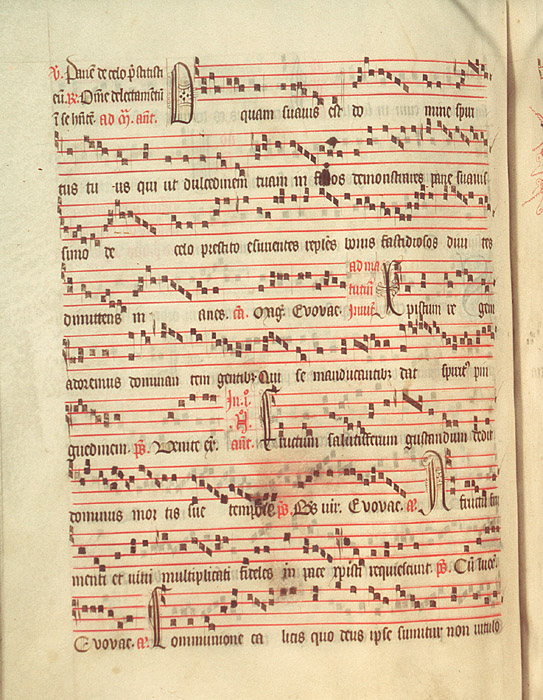 V. Panē de celo p̄stitisti
eis. R. Om̄e delectamentū
ī se hn̄tē. ad m̄. ant̄.
O quam suavis est do mine spiri
tus tu us qui ut dulcedinem tuam in filios demonstrares pane suavis
simo de celo prestito esurientes reples bonis fastidiosos divi tes
dimittens in anes. Evovae. ad ma
tutin̄ Xpistum re gem
adoremus dominan tem gentibꝫ Qui se manducantibꝫ dat spirit9 pin
guedinem. ps̄. Venite ex. In. ant̄. Fructum salutiferum gustandum dedit
dominus mor tis sue tempore ps̄. Bs̄ vir. Evovae. a. A fructu fru
menti et vini multiplicati fideles in pace xpisti requiescunt. ps̄. Cū invoc.
Evovae. a. Communione ca licis quo deus ipse sumitur non vitulo